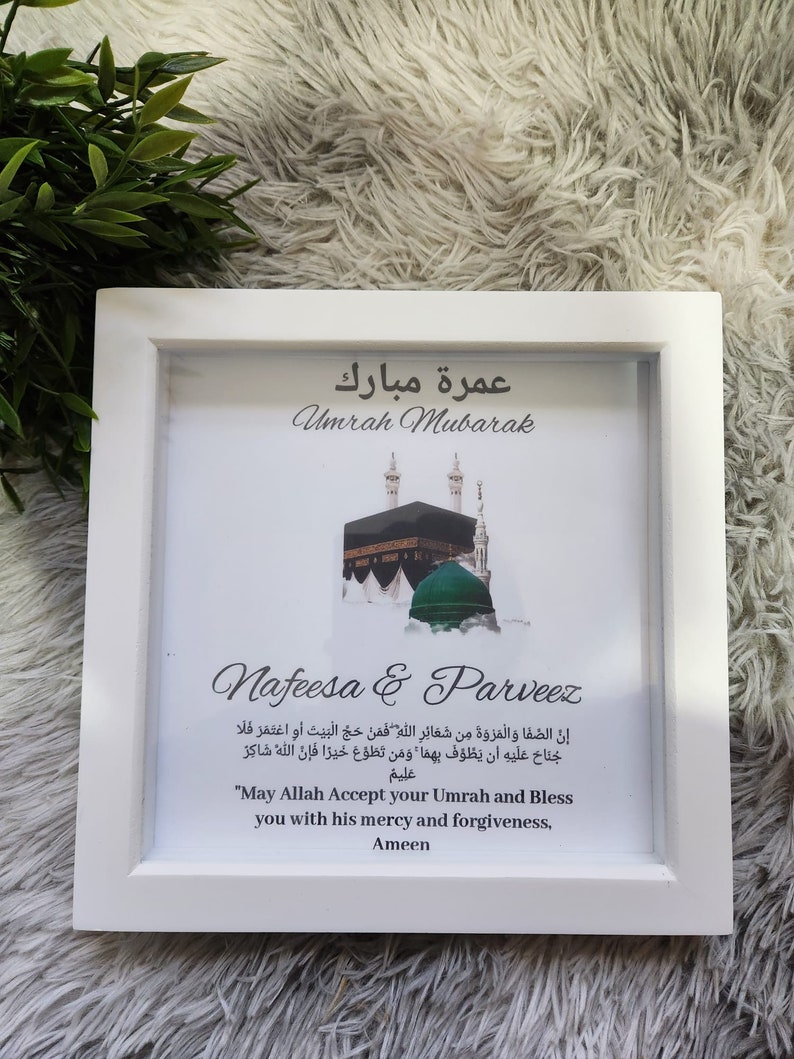 عمرة مبارك
Umrah Mubarak
Nafeesa & Parveez
إِنَّ الصَّفَا وَالْمَرْوَةَ مِن شَعَائِرِ اللَّهِ ۖ فَمَنْ حَجَّ الْبَيْتَ أَوِ اعْتَمَرَ فَلَا
جُنَاحَ عَلَيْهِ أَن يَطَّوَّفَ بِهِمَا ۚ وَمَن تَطَوَّعَ خَيْرًا فَإِنَّ اللَّهَ شَاكِرٌ
عَلِيمٌ
"May Allah Accept your Umrah and Bless
you with his mercy and forgiveness,
Ameen